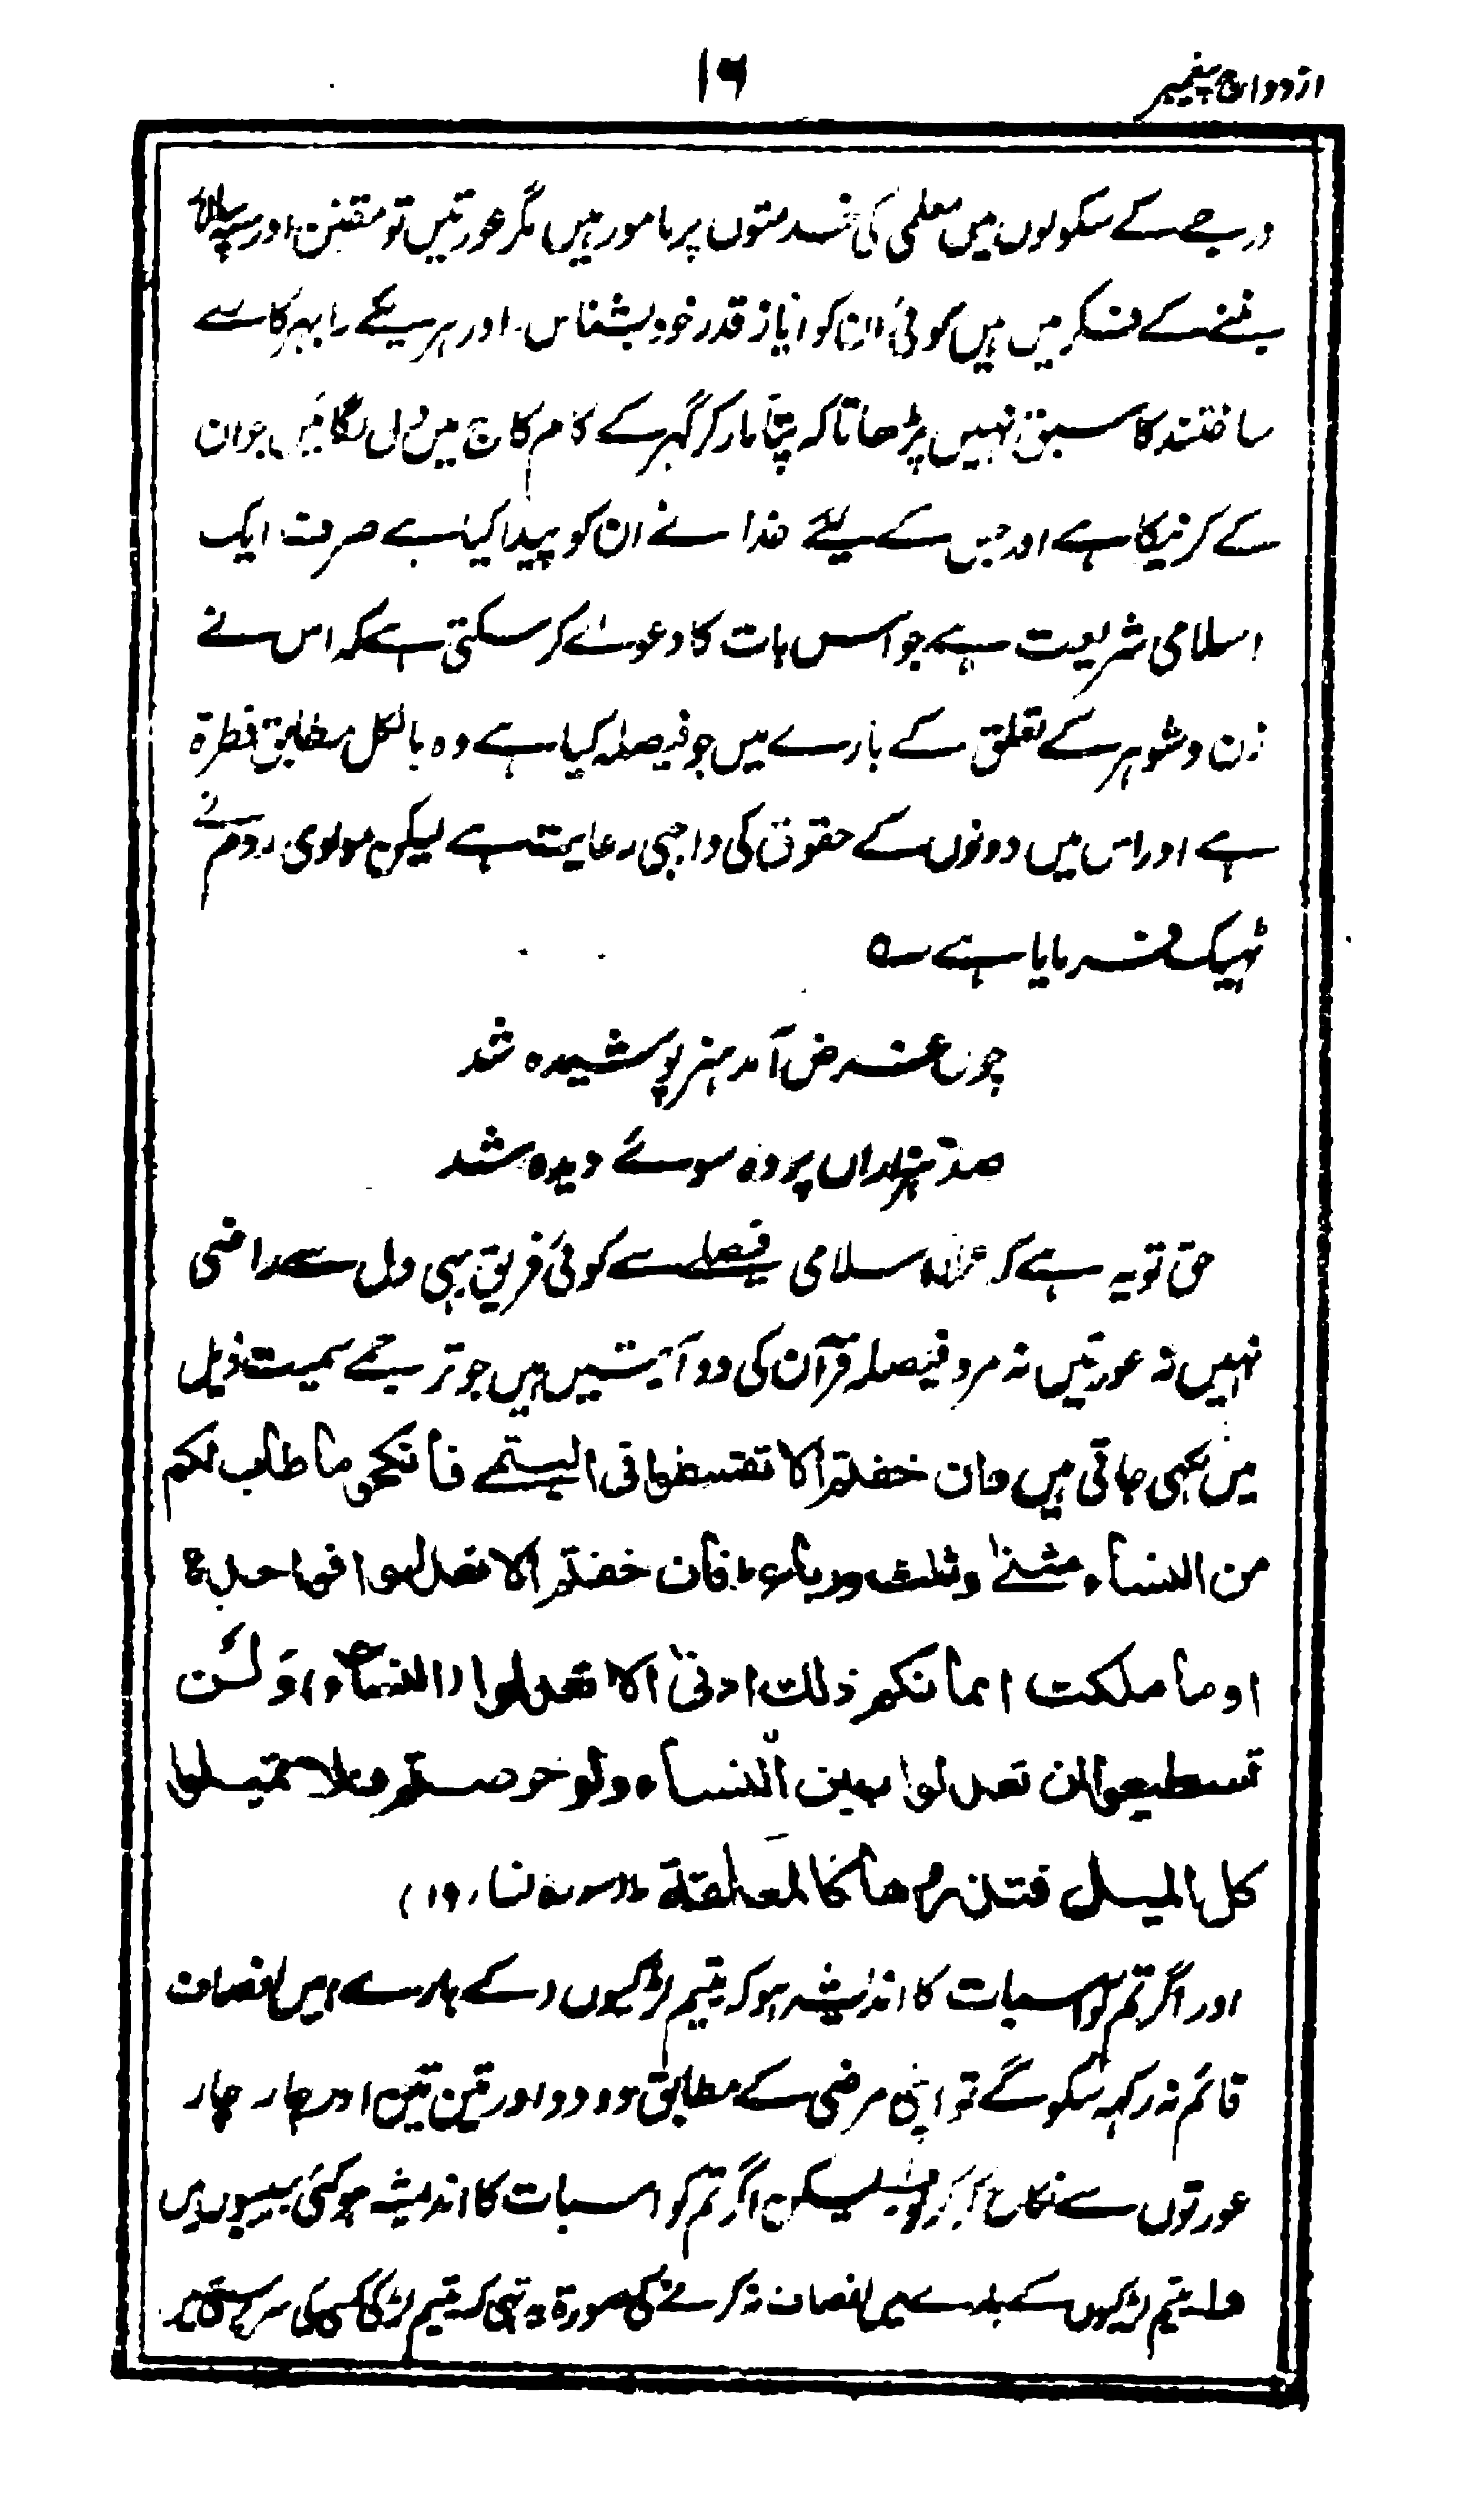 ازدواج پیغمبر
۱۶
درجے کے سکولوں میں معلمی کی خدمتوں پر مامور ہیں مگر عورتیں تو مقنن اور سپہ سالار
بننے کے فکر میں ہیں کوئی ان کو ایاز قدر خود بشناس۔ اور ہر یکے را بہر کارے
ساختند کا سبق نہیں پڑھاتا کہ پتا مار کر گہر کے کام کاج میں دل لگائیں جو ان
کے کرنیکا ہے اور جس کے لیے خدا نے ان کو پیدا کیا ہے صرف ایک
اسلامی شریعت ہے جو اس بات کا دعوے کر سکتی ہے کہ اس نے
زن و شوہر کے تعلق کے بارے میں جو فیصلہ کیا ہے وہ بالکل مطابق فطرۃ
ہے اور اس میں دونوں کے حقوق کی واجبی رعایت ہے لیکن مولوی روم نے
ٹہیک فرمایا ہے ؎
چوں غرض آمد ہنر پوشیدہ شد
صد ہزاراں پردہ سوے دیدہ شد
حق تو یہ ہے کہ اسلامی فیصلے سے کوئی فریق بہی دل سے راضی
نہیں نہ عورتیں نہ مرد فیصلہ قرآن کی دو آیتیں ہیں جو ترجمے سمیت ذیل
میں لکھی جاتی ہیں وان خفتم الا تقسطوا فی الیتمے فانکحوا ما طاب لکم
من النساء مثنےٰ وثلث وربٰع۔ فان خفتم الا تعدلوا فواحدۃ
او ما ملکت ایمانکم ذلک ادنیٰ الا تعولوا (النساء) وَلَن
تستطیعوا ان تعدلوا بین النساء ولو حرصتم فلا تمیلوا
کل المیل فتذروھا کالمعلقۃ
اور اگر تم کو اس بات کا اندیشہ ہو کہ یتیم لڑکیوں (کے بارے) میں انصاف
قائم نہ رکہہ سکو گے تو اپنی مرضی کے مطابق دو دو اور تین تین اور چار چار
عورتوں سے نکاح کر لو لیکن اگر تم کو اس بات کا اندیشہ ہو کئی بیبیوں میں
ف یتیم لڑکیوں کے بارے میں انصاف نہ کرنے کی صورۃ یہ تہی کہ یتیم لڑکی